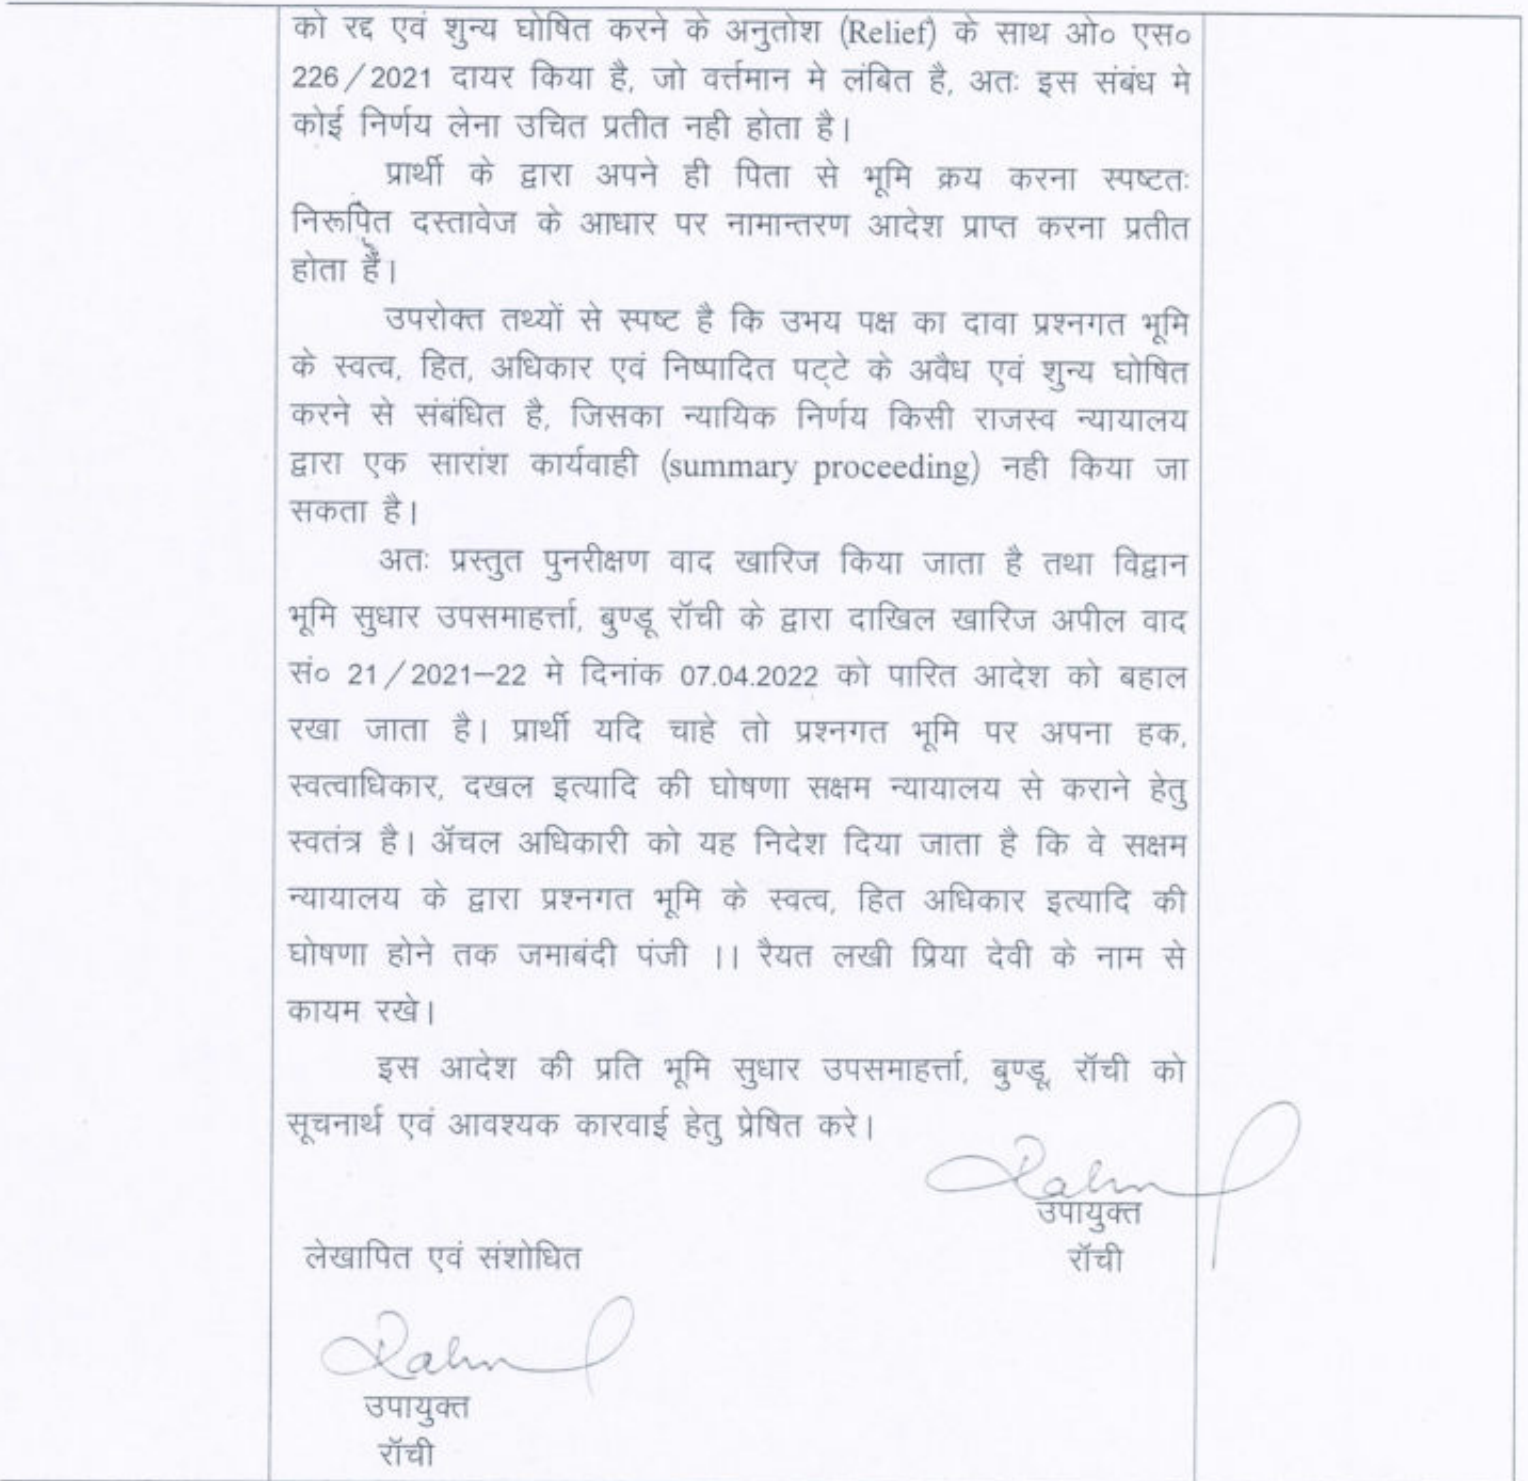 को रद्द एवं शुन्य घोषित करने के अनुतोश (Relief) के साथ ओ० एस०
226/2021 दायर किया है, जो वर्त्तमान मे लंबित है, अतः इस संबंध मे
कोई निर्णय लेना उचित प्रतीत नही होता है।
प्रार्थी के द्वारा अपने ही पिता से भूमि क्रय करना स्पष्टतः
निरूपित दस्तावेज के आधार पर नामान्तरण आदेश प्राप्त करना प्रतीत
होता हैं।
उपरोक्त तथ्यों से स्पष्ट है कि उभय पक्ष का दावा प्रश्नगत भूमि
के स्वत्व, हित, अधिकार एवं निष्पादित पट्टे के अवैध एवं शुन्य घोषित
करने से संबंधित है, जिसका न्यायिक निर्णय किसी राजस्व न्यायालय
द्वारा एक सारांश कार्यवाही (summary proceeding) नही किया जा
सकता है।
अतः प्रस्तुत पुनरीक्षण वाद खारिज किया जाता है तथा विद्वान
भूमि सुधार उपसमाहर्त्ता, बुण्डू रॉची के द्वारा दाखिल खारिज अपील वाद
सं० 21/2021–22 मे दिनांक 07.04.2022 को पारित आदेश को बहाल
रखा जाता है। प्रार्थी यदि चाहे तो प्रश्नगत भूमि पर अपना हक,
स्वत्वाधिकार, दखल इत्यादि की घोषणा सक्षम न्यायालय से कराने हेतु
स्वतंत्र है। ॲचल अधिकारी को यह निदेश दिया जाता है कि वे सक्षम
न्यायालय के द्वारा प्रश्नगत भूमि के स्वत्व, हित अधिकार इत्यादि की
घोषणा होने तक जमाबंदी पंजी ।। रैयत लखी प्रिया देवी के नाम से
कायम रखे।
इस आदेश की प्रति भूमि सुधार उपसमाहर्त्ता, बुण्डू, रॉची को
सूचनार्थ एवं आवश्यक कारवाई हेतु प्रेषित करे।
उपायुक्त
लेखापित एवं संशोधित रॉची
उपायुक्त
रॉची